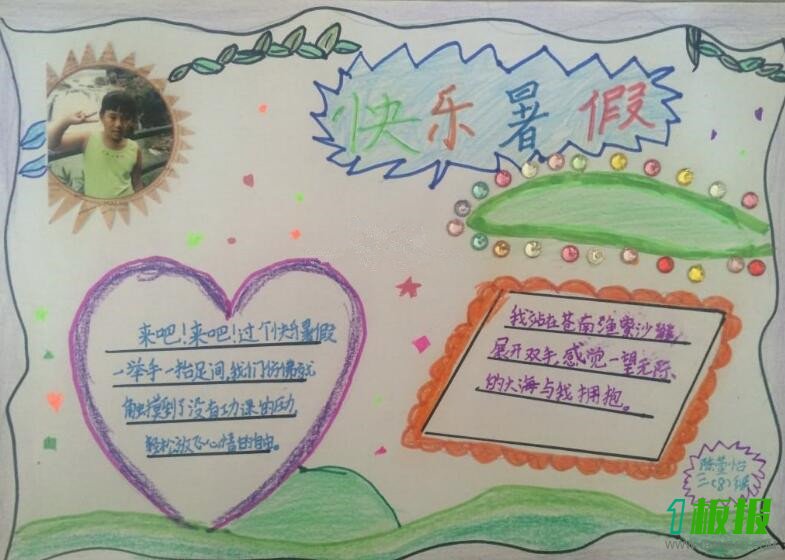 快乐暑假
来吧！来吧！过个快乐暑假
一举手一抬足间，我们仿佛就
触摸到了没有功课的压力
轻松放飞心情的自由。
我站在苍南渔寮沙滩，
展开双手，感觉一望无际
的大海与我拥抱。
二（8）班
1板报